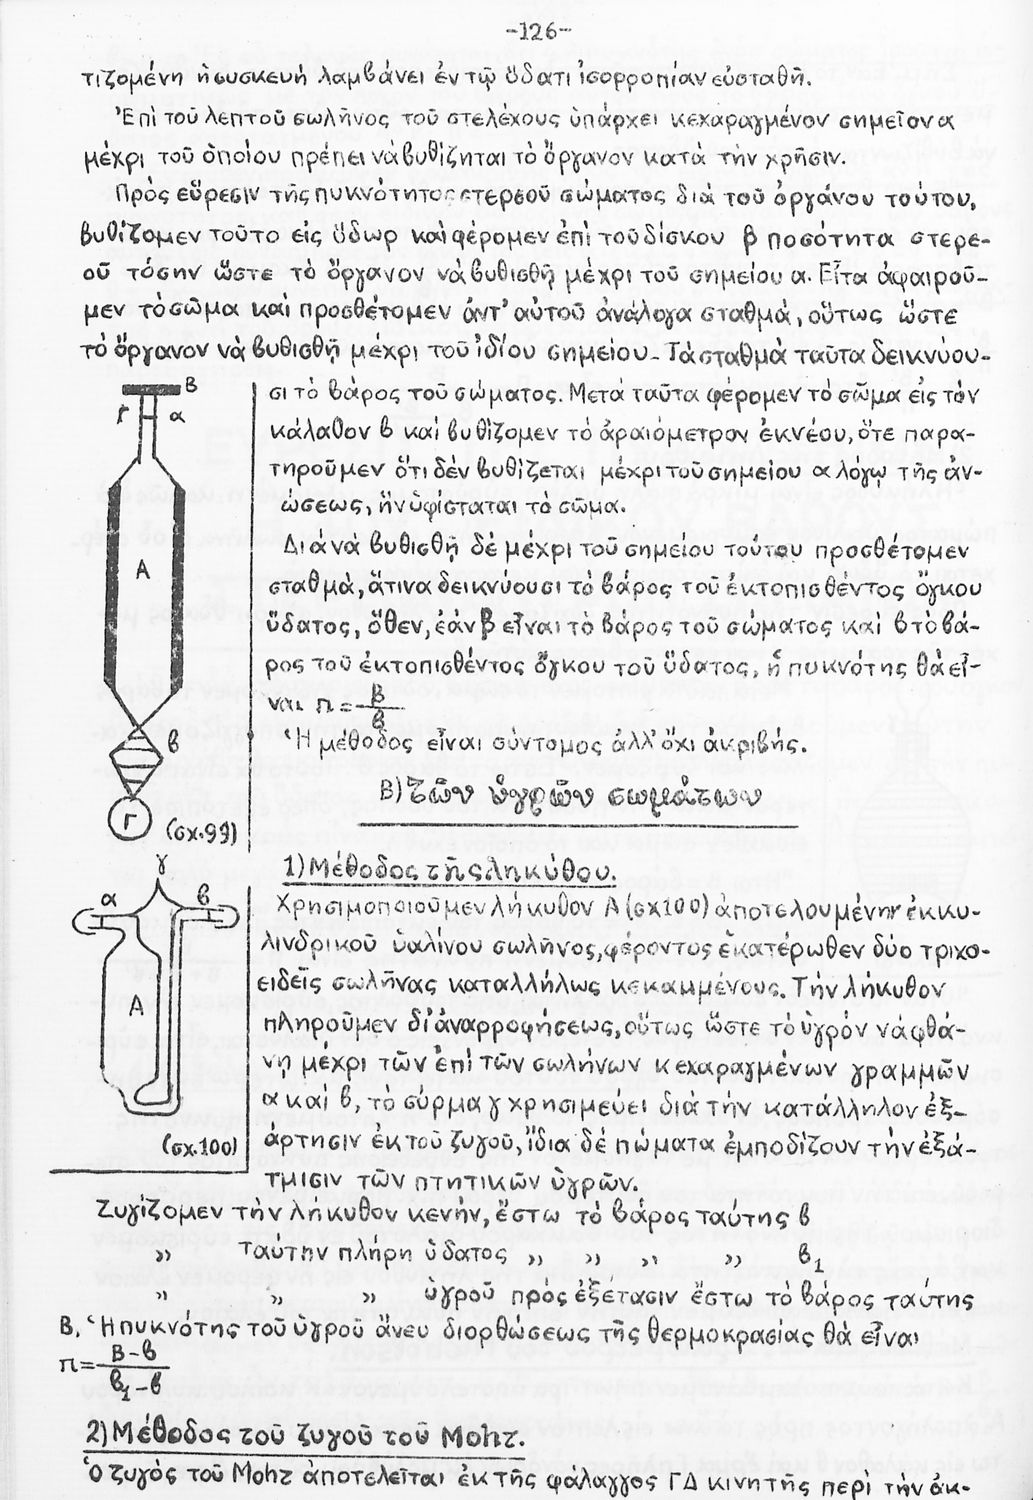 -126-
τιζομένη ἡ συσκευή λαμβάνει ἐν τῷ ὕδατι ἰσορροπίαν εὐσταθῆ.
Ἐπί τοῦ λεπτοῦ σωλῆνος τοῦ στελέχους ὑπάρχει κεχαραγμένον σημεῖον α
μέχρι τοῦ ὁποίου πρέπει νά βυθίζηται τό ὄργανον κατά τήν χρῆσιν.
Πρός εὕρεσιν τῆς πυκνότητος στερεοῦ σώματος διά τοῦ ὀργάνου τούτου,
βυθίζομεν τοῦτο εἰς ὕδωρ καί φέρομεν ἐπί τοῦ δίσκου β ποσότητα στερε-
οῦ τόσην ὥστε τό ὄργανον νά βυθισθῇ μέχρι τοῦ σημείου α. Εἶτα ἀφαιροῦ-
μεν τό σῶμα καί προσθέτομεν ἀντ' αὐτοῦ ἀνάλογα σταθμά, οὕτως ὥστε
τό ὄργανον νά βυθισθῇ μέχρι τοῦ ἰδίου σημείου. Τά σταθμά ταῦτα δεικνύου-
σι τό βάρος τοῦ σώματος. Μετά ταῦτα φέρομεν τό σῶμα εἰς τόν
κάλαθον β καί βυθίζομεν τό ἀραιόμετρον ἐκ νέου, ὅτε παρα-
τηροῦμεν ὅτι δέν βυθίζεται μέχρι τοῦ σημείου α λόγῳ τῆς ἀν-
ώσεως, ἥν ὑφίσταται τό σῶμα.
Διά νά βυθισθῇ δέ μέχρι τοῦ σημείου τούτου προσθέτομεν
σταθμά, ἅτινα δεικνύουσι τό βάρος τοῦ ἐκτοπισθέντος ὄγκου
ὕδατος, ὅθεν, ἐάν β εἶναι τό βάρος τοῦ σώματος καί β τό βά-
ρος τοῦ ἐκτοπισθέντος ὄγκου τοῦ ὕδατος, ἡ πυκνότης θά εἶ-
ναι π = Β/β
Ἡ μέθοδος εἶναι σύντομος ἀλλ' ὄχι ἀκριβής.
Β) Τῶν ὑγρῶν σωμάτων
Β
Γ α
Α
β
Γ
(σχ.99)
1) Μέθοδος τῆς ληκύθου.
Χρησιμοποιοῦμεν λήκυθον Α (σχ100) ἀποτελουμένην ἐκ κυ-
λινδρικοῦ ὑαλίνου σωλῆνος, φέροντος ἑκατέρωθεν δύο τριχο-
ειδεῖς σωλῆνας καταλλήλως κεκαμμένους. Τήν λήκυθον
πληροῦμεν δι' ἀναρροφήσεως, οὕτως ὥστε τό ὑγρόν νά φθά-
νῃ μέχρι τῶν ἐπί τῶν σωλήνων κεχαραγμένων γραμμῶν
α καί β, τό σύρμα γ χρησιμεύει διά τήν κατάλληλον ἐξ-
άρτησιν ἐκ τοῦ ζυγοῦ, ἴδια δέ πώματα ἐμποδίζουν τήν ἐξά-
τμισιν τῶν πτητικῶν ὑγρῶν.
γ
α β
Α
(σχ.100)
Ζυγίζομεν τήν λήκυθον κενήν, ἔστω τό βάρος ταύτης β
,, ταύτην πλήρη ὕδατος ,, ,, ,, ,, β1
,, ,, ,, ὑγροῦ πρός ἐξέτασιν ἔστω τό βάρος ταύτης
Β. Ἡ πυκνότης τοῦ ὑγροῦ ἄνευ διορθώσεως τῆς θερμοκρασίας θά εἶναι
π = Β-β / β1-β
2) Μέθοδος τοῦ ζυγοῦ τοῦ Mohr.
Ὁ ζυγός τοῦ Mohr ἀποτελεῖται ἐκ τῆς φάλαγγος ΓΔ κινητῆς περί τήν ἀκ-